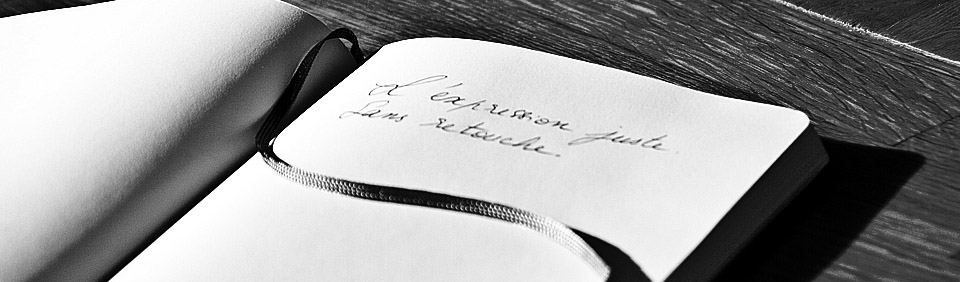 L'expression juste.
Sans retouche.